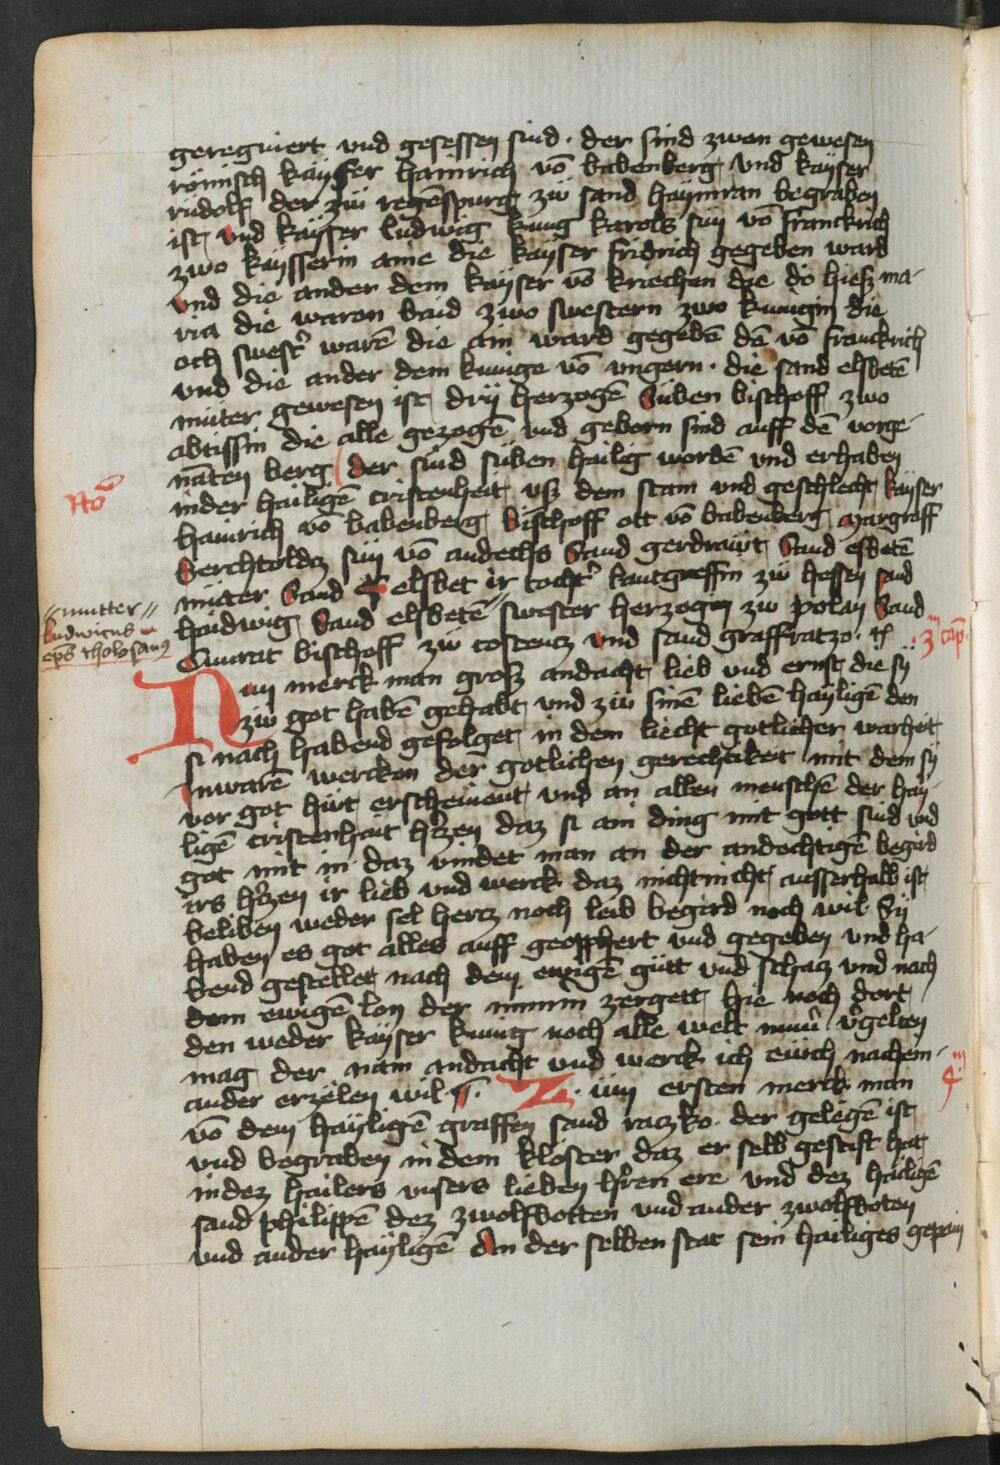 geregniert vnd gesessen sind · der sind zwen gewesen
römisch kayser hainrich vō babenberg vnd kayser
rudolf der zü regēspurg zü sand haymran begraben
ist vnd kayser ludwig kung karols sün vō franckrich
zwo kaysserin aine die kayser fridrich gegeben ward
vnd die ander dem kayser vō kriechen die do hiesz ma-
ria die waren baid zwo swestern zwo kungin die
och swestˀ warē die ain ward gegebē dē vō franckrich
vnd die ander dem kunige vō vngern · die sand elsbetē
müter gewesen ist drÿ herzogē süben bischoff zwo
abtissin die alle gezogē vnd geborn sind auff dē vorge-
nāten berg der sind süben hailig wordē vnd erhaben
inder hailigē cristenheit vsz dem stam vnd geschlecht kayser
hainrich vō babenberg bischoff ott vō babenberg margraff
berchtoldz sün vō andechs Sand gerdraüt Sand elsbetē
müter Sand elsbet ir tochtˀ lantgreffin zü hessen sand
haidwig Sand elsbetē swester herzogin zü polan Sand
Cunrat bischoff zü costentz vnd sand graffratzo ·
"mutter"
ludwicus
eps tholosanus
3 cap
Nun merck man grosz andacht lieb vnd ernst die sÿ
zü got habē gehabt vnd zü sinē liebē hayligē den
si nach habend gefolget in dem liecht gotlicher warheit
Inwarē wercken der gotlichen gerechtikeit mit dem sÿ
vor got hüt erscheinent vnd an allen menschē der hay-
ligē cristenhait hˀzen daz si ain ding mit gott sind vnd
got mit in daz vindet man an der andechtigē begird
irs hˀzen ir lieb vnd werck daz nichtnicht ausserhalb ist
beliben weder sel hertz noch leib begird noch wil Sÿ
haben es got alles auff geopphert vnd gegeben vnd ha-
bend gestellet nach dem ewigē gütt vnd schatz vnd nach
dem ewigē lon der nimm zergett hie noch dort
den weder kayser kunig noch alle welt vˀgelten
mag der nam andacht vnd werck ich eüch nachem-
ander erzelen wil · Züm ersten merck man
vō dem hayligē graffen sand raczko · der gelegē ist
vnd begraben in dem kloster daz er selb gestift hat
indez hailers vnsers lieben hˀren ere vnd dez hailigē
sand philippē dez zwolfbotten vnd ander zwolfboten
vnd ander hayligē An der selben stat sein hailiges gepain